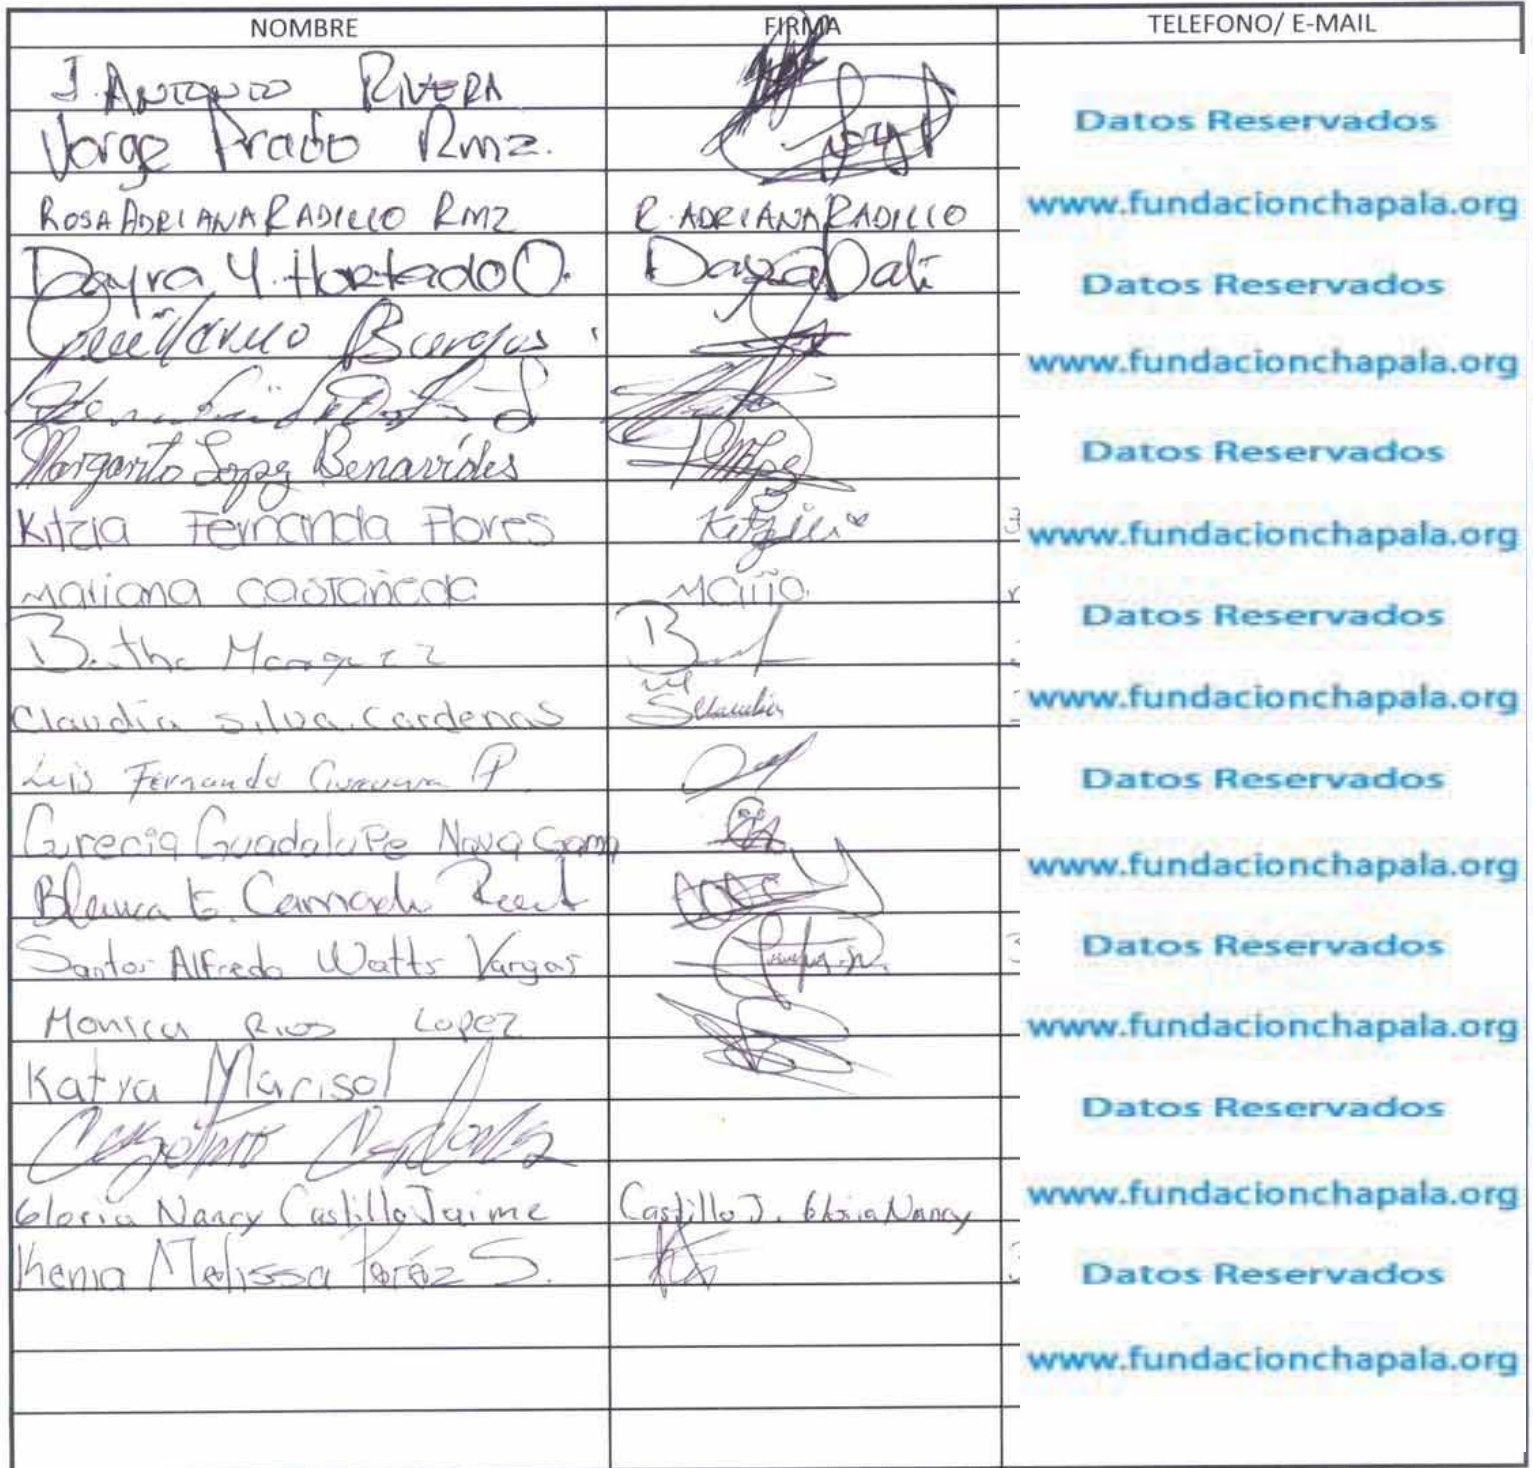 NOMBRE FIRMA TELEFONO/ E-MAIL
J. ANTONIO RIVERA
Jorge Prado Rmz.
Datos Reservados
ROSA ADRIANA RADILLO RMZ R. ADRIANA RADILLO www.fundacionchapala.org
Dayra Y. Hortado O. Dayra Dali Datos Reservados
Guillermo Burgos www.fundacionchapala.org
Margarito Lopez Benavides Datos Reservados
Kitzia Fernanda Flores Kitzia www.fundacionchapala.org
Mariana Castañeda Datos Reservados
Bertha Marquez
Claudia Silva Cardenas Claudia www.fundacionchapala.org
Luis Fernando Guevara P. Datos Reservados
Grecia Guadalupe Nava Gam
www.fundacionchapala.org
Blanca E. Camacho
Santos Alfredo Watts Vargas Datos Reservados
Monica Rios Lopez www.fundacionchapala.org
Katya Marisol Datos Reservados
Gloria Nancy Castillo Jaime Castillo J. Gloria Nancy www.fundacionchapala.org
Kenia Melissa Peréz S. Datos Reservados
www.fundacionchapala.org